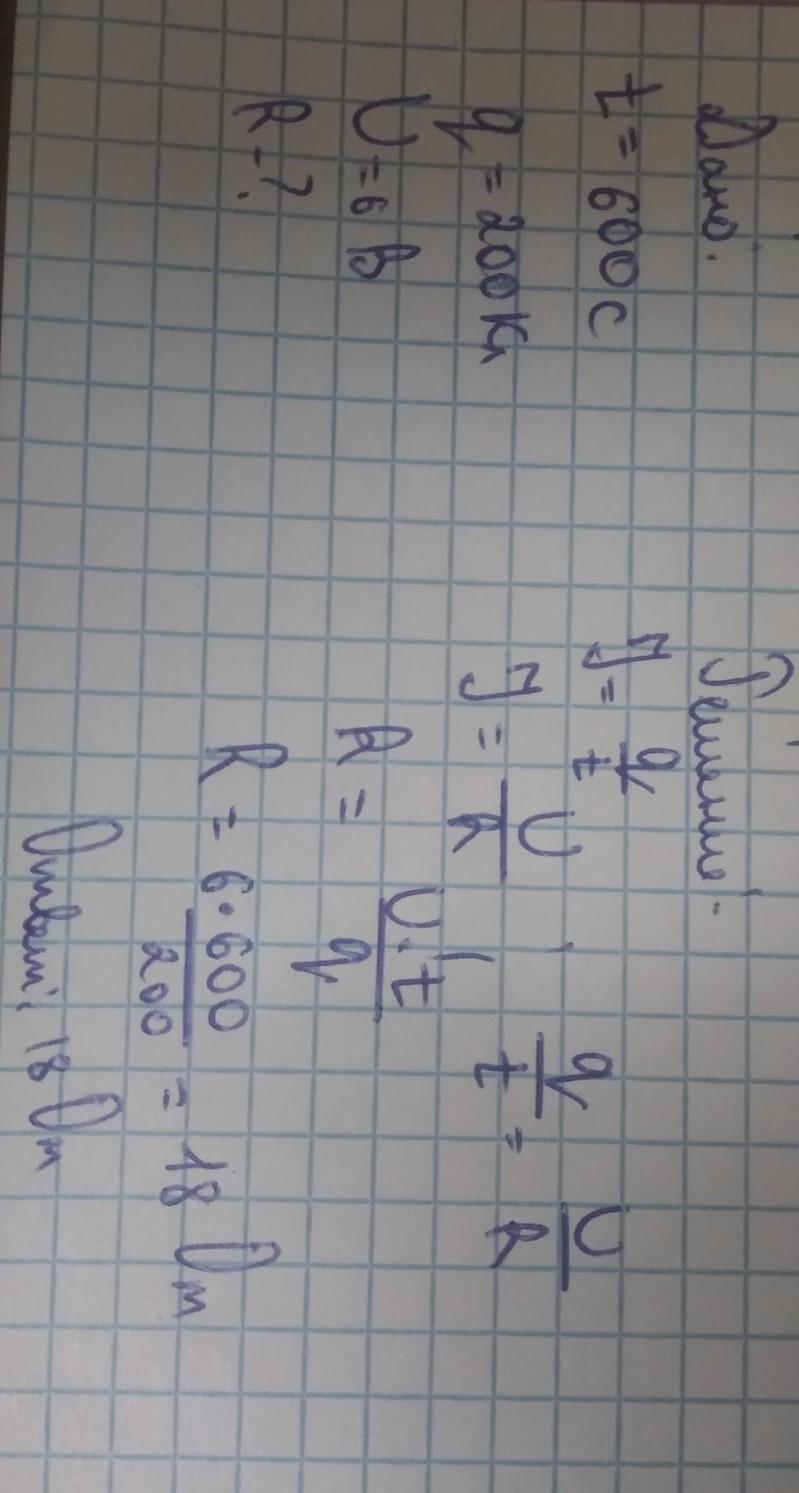 Дано:
t = 600 с
q = 200 Кл
U = 6 В
R - ?
Решение:
J = q/t
J = U/R ; q/t = U/R
R = U·t/q
R = 6·600/200 = 18 Ом
Ответ: 18 Ом